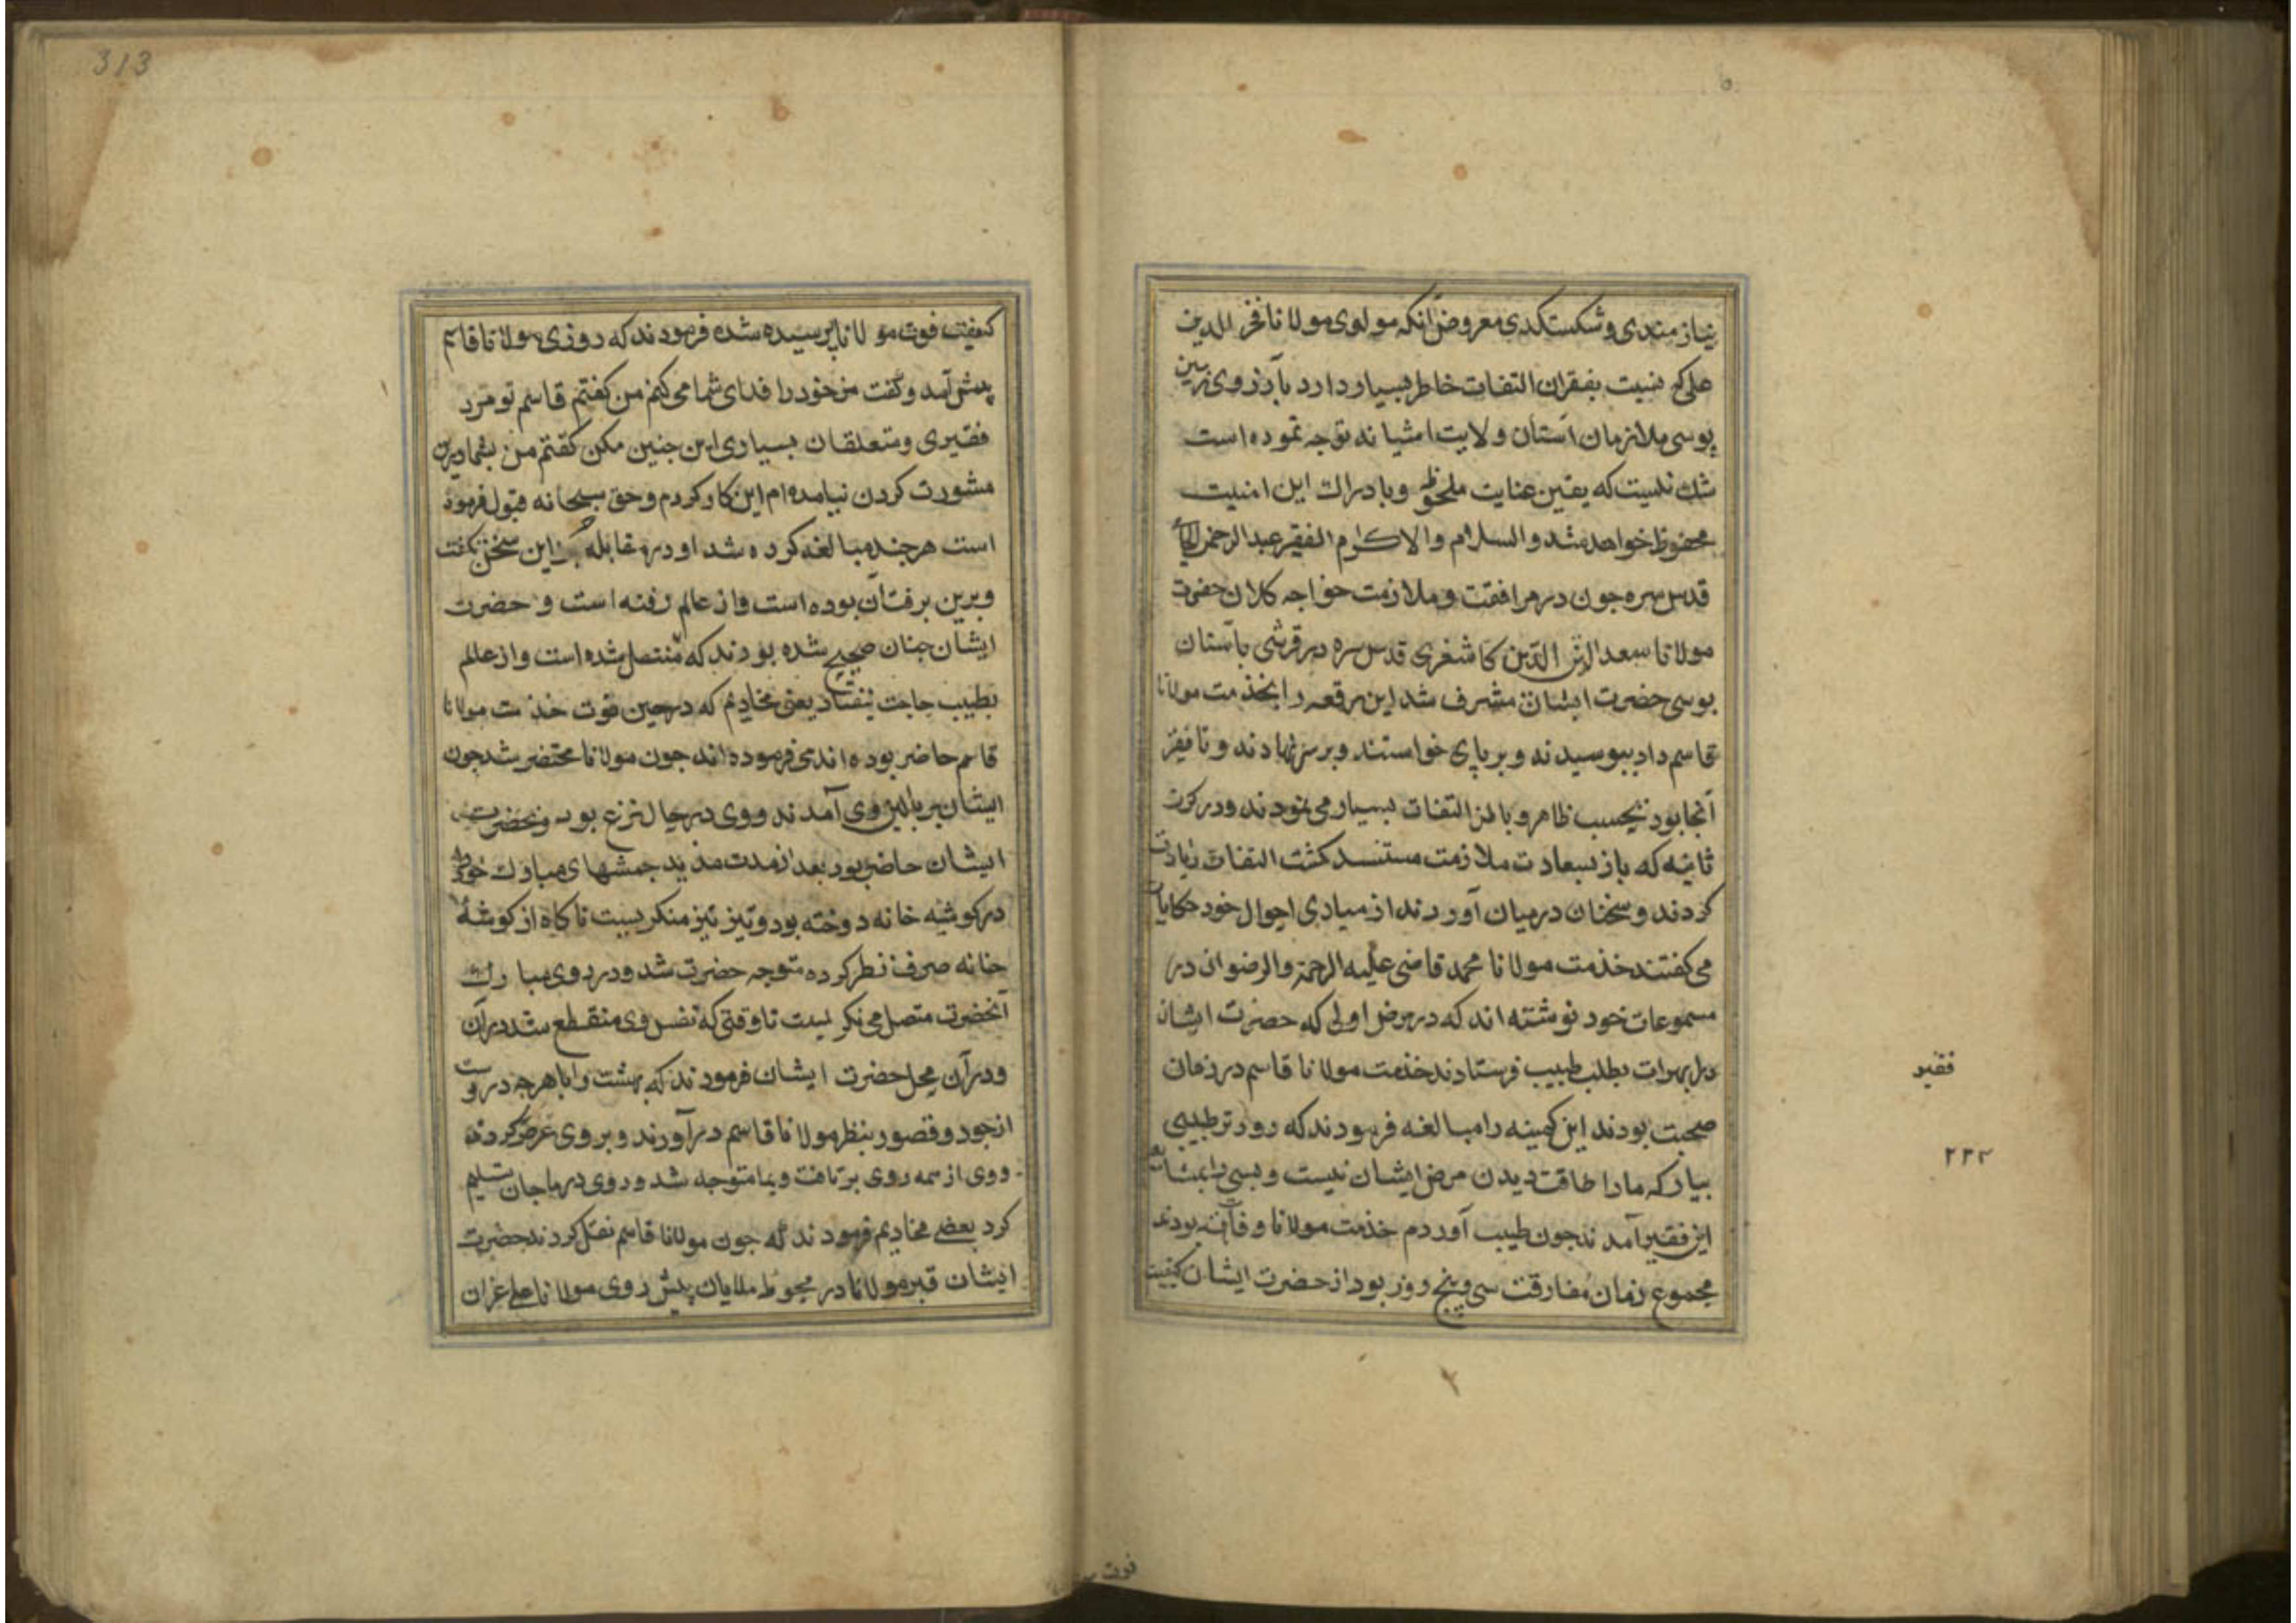 نیازمندی و شکستکدی معروض آنکه مولوی مولانا فخر الدین
علی که نسبت بفقران التفات خاطر بسیار دارد بآرزوی زمین
بوسی ملازمان آستان ولایت اشیانه توجه نموده است
شك نیست که یقین عنایت ملحوظ و بادراك این امنیت
محفوظ خواهد شد و السلام والاکرام الفقیر عبدالرحمن الجامی
قدس سره جون در مرافقت و ملازمت خواجه کلان حضرت
مولانا سعد الدین الدین کاشغری قدس سره در قرشی بآستان
بوسی حضرت ایشان مشرف شد این رقعه را بخذمت مولانا
قاسم داد ببوسیدند و بر پای خواستند و بر سر نهادند و تا فقیر
آنجا بود بحسب ظاهر و باطن التفات بسیار می نمودند و در کرت
ثانیه که باز بسعادت ملازمت مستسعد کشت التفات زیادت
کردند و سخنان در میان آوردند از مبادی احوال خود حکایات
می کفتند خذمت مولانا محمد قاضی علیه الرحمة والرضوان در
مسموعات خود نوشته اند که در مرض اولی که حضرت ایشان
مرا بهرات بطلب طبیب فرستادند خذمت مولانا قاسم در زمان
صحبت بودند این کمینه را مبالغه فرمودند که زودتر طبیبی
بیار که مارا طاقت دیدن مرض ایشان نیست و بسی
این فقیر آمدند جون طبیب آوردم خذمت مولانا وفات بودند
مجموع زمان مفارقت سی و پنج روز بود از حضرت ایشان کیفیت
فقیر
۲۳۴
فوت
313
کیفیت فوت مولانا پرسیده شده فرمودند که روزی مولانا قاسم
پیش آمد و گفت من خود را فدای شما می کنم من کفتم قاسم تو مرد
فقیری و متعلقان بسیاری این جنین مکن کفتم من بشما درین
مشورت کردن نیامده ام این کار کردم و حق سبحانه قبول فرموده
است هر چند مبالغه کرده شد او در مقابله این سخن نکفت
و برین برفتان بوده است و از عالم رفته است و حضرت
ایشان جنان صحیح شده بودند که متصل شده است و از عالم
بطیب حاجت نیفتاد بعضی مخادیم که در حین فوت خذمت مولانا
قاسم حاضر بوده اند می فرموده اند جون مولانا محتضر شد جون
ایشان بر بالین وی آمدند و وی در حال نزع بود
ایشان حاضر بود بعد از مدت مدید جمشهای مبارك خود را
در کوشه خانه دوخته بود و تیز تیز منکریست ناکاه از کوشهٔ
خانه صرف نظر کرده متوجه حضرت شد و در روی مبارك
آنحضرت متصل می نکریست تا وقتی که نفس وی منقطع شد در آن
و در آن محل حضرت ایشان فرمودند که بهشت را با هر جه در وست
از حور و قصور بنظر مولانا قاسم در آوردند و بر وی عرض کردند
و وی از همه روی بر تافت و بما متوجه شد و روی در ما جان تسلیم
کرد بعضی مخادیم فرمودند که جون مولانا قاسم نقل کردند حضرت
ایشان قبر مولانا در محوطه ملایان پیش روی مولانا علی عران